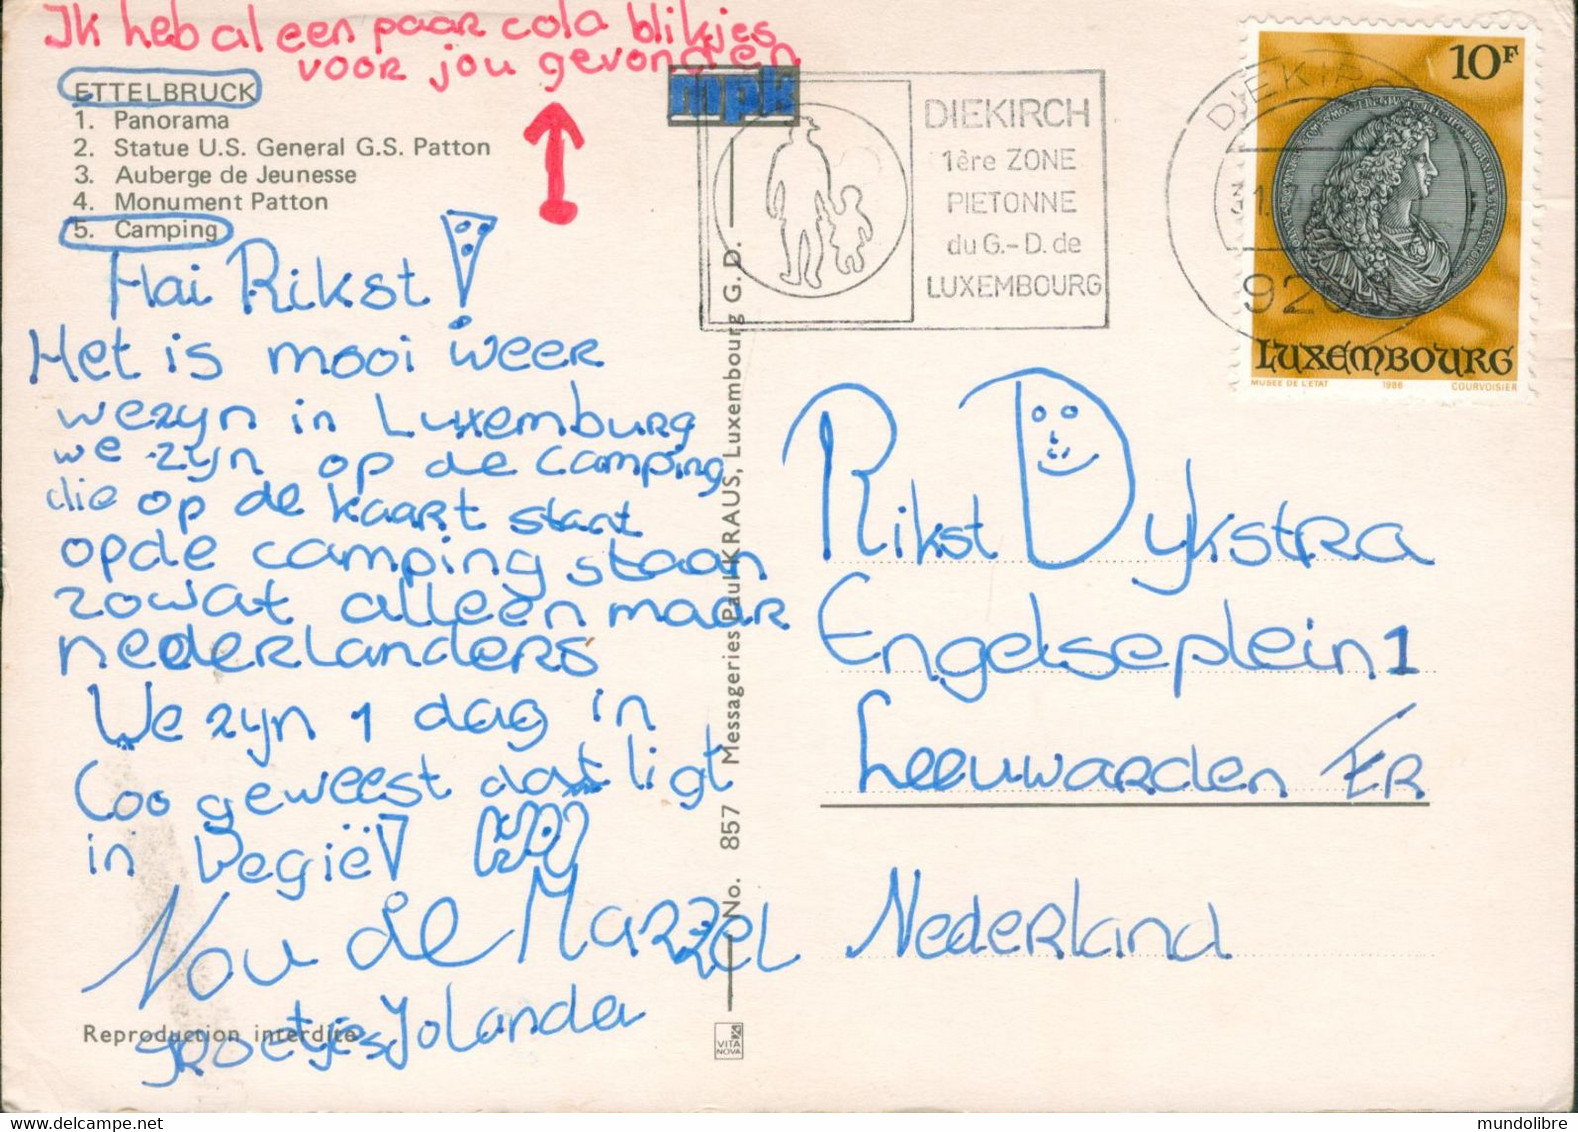 Ik heb al een paar cola blikjes
voor jou gevonden
ETTELBRUCK
1. Panorama
2. Statue U.S. General G.S. Patton
3. Auberge de Jeunesse
4. Monument Patton
5. Camping
mpk
Hai Rikst!
Het is mooi weer
we zyn in Luxemburg
we zyn op de camping
die op de kaart staat
op de camping staan
zowat alleen maar
nederlanders
We zyn 1 dag in
Coo geweest dat ligt
in Begië!
Nou de Mazzel
groetjes Jolanda
Reproduction interdite
No. 857 Messageries Paul KRAUS, Luxembourg G. D.
VITA
NOVA
DIEKIRCH
1ère ZONE
PIETONNE
du G.-D. de
LUXEMBOURG
DIEKIRCH
10F
LUXEMBOURG
MUSÉE DE L'ETAT 1986 COURVOISIER
Rikst Dykstra
Engelseplein 1
Leeuwarden FR
Nederland
mundolibre